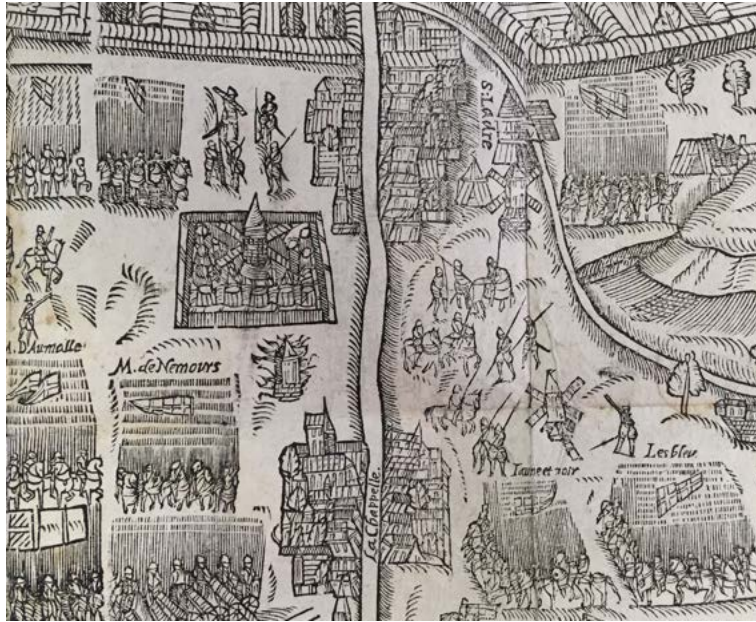 S. Ladre
M. D'Aumalle
M. de Nemours
La Chappelle.
Iaune et noir
Les bleu